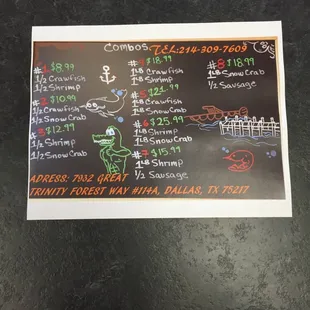 Combos TEL:214-309-7609
#1 $8.99
1/2 Crawfish
1/2 Shrimp
#2 $10.99
1/2 Crawfish
1/2 SnowCrab
#3 $12.99
1/2 Shrimp
1/2 SnowCrab
#4 $18.99
1LB Crawfish
1LB Shrimp
#5 $21.99
1LB Crawfish
1LB SnowCrab
#6 $25.99
1LB Shrimp
1LB SnowCrab
#7 $15.99
1LB Shrimp
1/2 Sausage
#8 $18.99
1LB SnowCrab
1/2 Sausage
ADRESS: 7932 GREAT
TRINITY FOREST WAY #114A, DALLAS, TX 75217